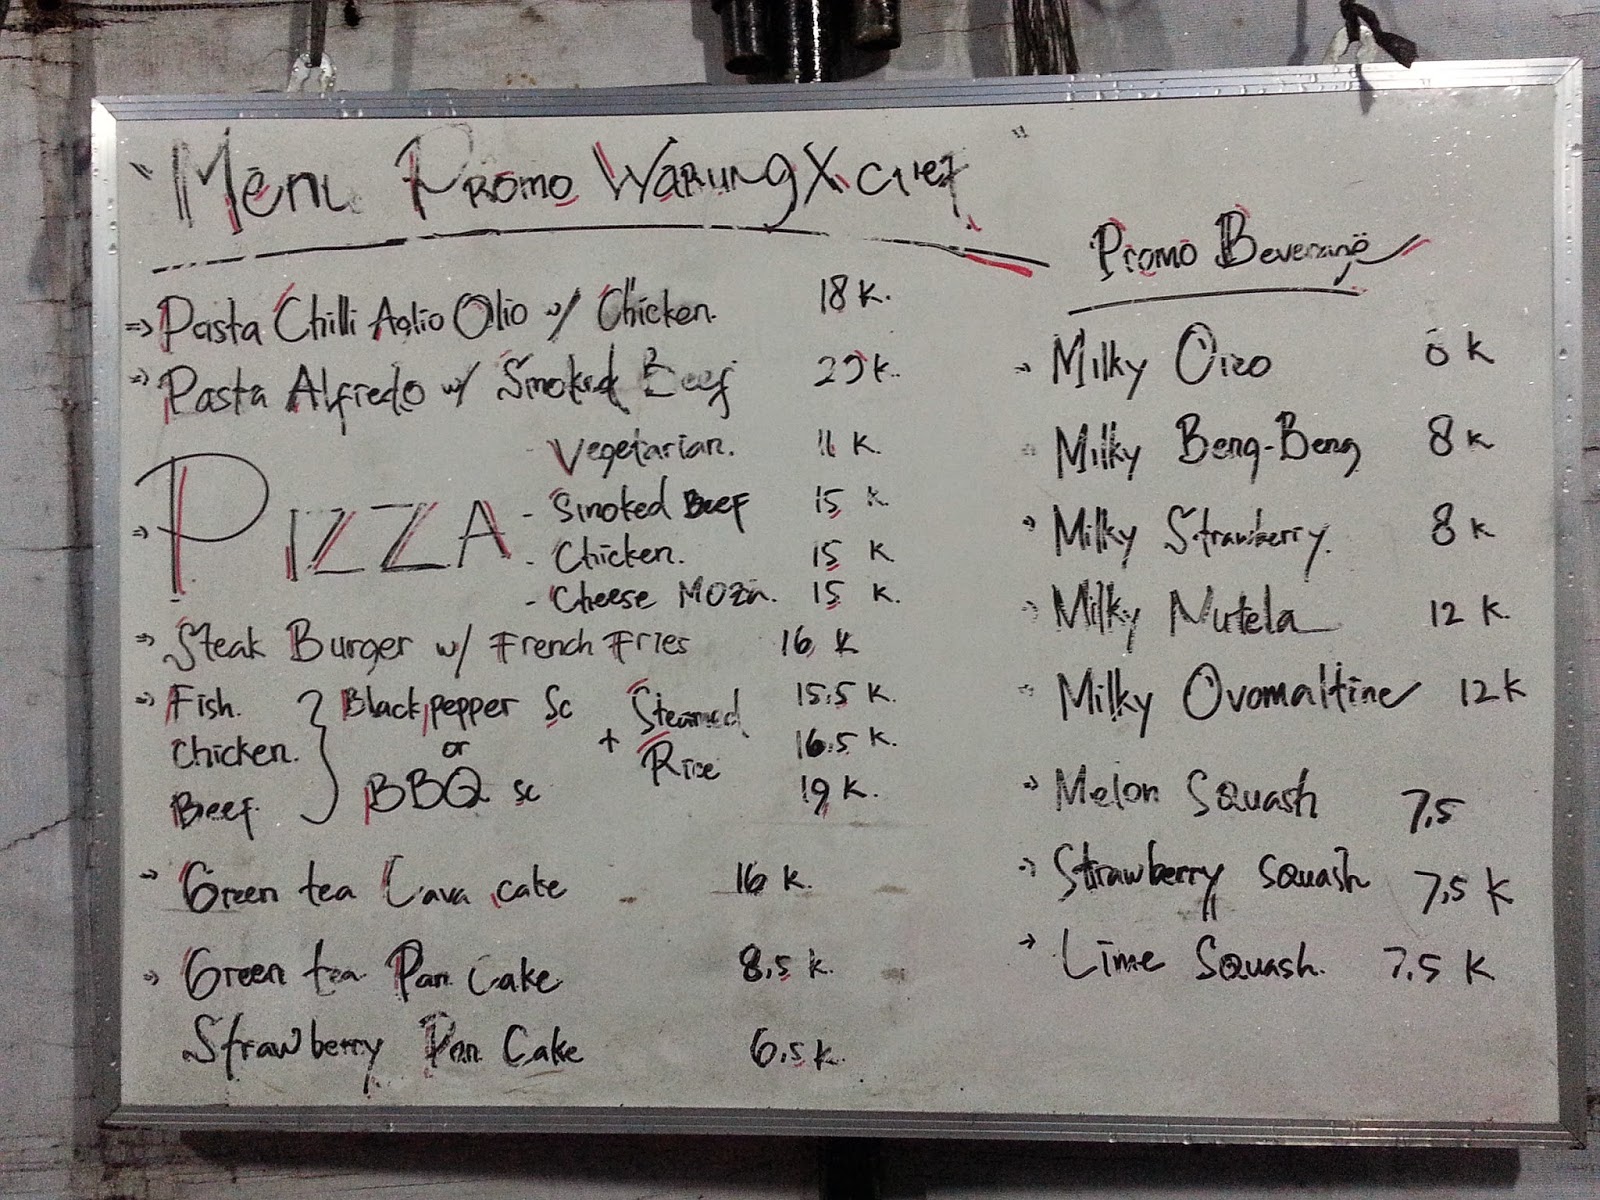 "Menu Promo Warung X
=> Pasta Chilli Aglio Olio w/ Chicken. 18 K.
=> Pasta Alfredo w/ Smoked Beef K.
=> PIZZA
- Vegetarian. 11 K.
- Smoked Beef 15 K
- Chicken. 15 K
- Cheese Mozz. 15 K.
=> Steak Burger w/ French Fries 16 K
=> Fish. } Blackpepper Sc + Steamed 15.5 K.
Chicken. or Rice 16.5 K.
Beef. BBQ Sc 19 K.
-> Green tea Lava cake 16 K.
-> Green tea Pan Cake 8.5 K.
Strawberry Pan Cake 6.5 K.
Promo Beverage
-> Milky Oreo K
Milky Beng-Beng 8 K
-> Milky Strawberry. 8 K
Milky Nutela 12 K.
Milky Ovomaltine 12 K
-> Melon Squash 7,5
-> Strawberry Squash 7,5 K
-> Lime Squash. 7,5 K